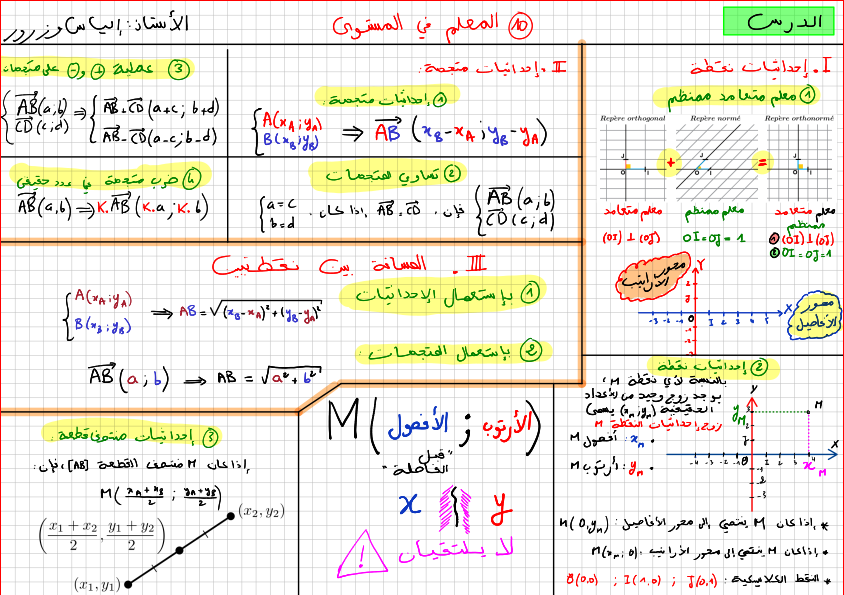 الدرس
⑩ المعلم في المستوى
الأستاذ: إلياس وزرور
I. إحداثيات نقطة
① معلم متعامد ممنظم
Repère orthogonal
Repère normé
Repère orthonormé
+
=
J
I
معلم متعامد
معلم ممنظم
معلم متعامد ممنظم
(OI) ⊥ (OJ)
OI = OJ = 1
① (OI) ⊥ (OJ)
② OI = OJ = 1
محور الأراتيب
محور الأفاصيل
Y
X
② إحداثيات نقطة
بالنسبة لأي نقطة M،
يوجد زوج وحيد من الأعداد
الحقيقية (x_M; y_M) يسمى
زوج إحداثيات النقطة M
• x_M: أفصول M
• y_M: أرتوب M
y
x
M
y_M
x_M
* إذا كان M ينتمي إلى محور الأفاصيل: M(0; y_M)
* إذا كان M ينتمي إلى محور الأراتيب: M(x_M; 0)
* النقط الكلاسيكية: O(0.0) ; I(1.0) ; J(0.1)
II. إحداثيات متجهة:
① إحداثيات متجهة:
A(x_A; y_A)
B(x_B; y_B)
⇒ AB (x_B - x_A ; y_B - y_A)
② تساوي المتجهات
AB(a; b)
CD(c; d)
فإن AB = CD إذا كان
a = c
b = d
③ عملية (+) و(-) على متجهات
AB(a,b)
CD(c,d)
⇒ AB + CD (a+c ; b+d)
AB - CD (a-c ; b-d)
④ ضرب متجهة في عدد حقيقي
AB(a,b) ⇒ K.AB (K.a ; K.b)
III. المسافة بين نقطتين
① بإستعمال الإحداثيات
A(x_A; y_A)
B(x_B; y_B)
⇒ AB = √((x_B - x_A)² + (y_B - y_A)²)
② بإستعمال المتجهات:
AB (a ; b) ⇒ AB = √(a² + b²)
③ إحداثيات منتصف قطعة:
إذا كان M منتصف القطعة [AB]، فإن:
M( (x_A + x_B)/2 ; (y_A + y_B)/2 )
( (x₁ + x₂)/2 , (y₁ + y₂)/2 )
(x₂, y₂)
(x₁, y₁)
M(الأفصول ; الأرتوب)
"قبل الفاصلة"
x
y
لا يلتقيان
!